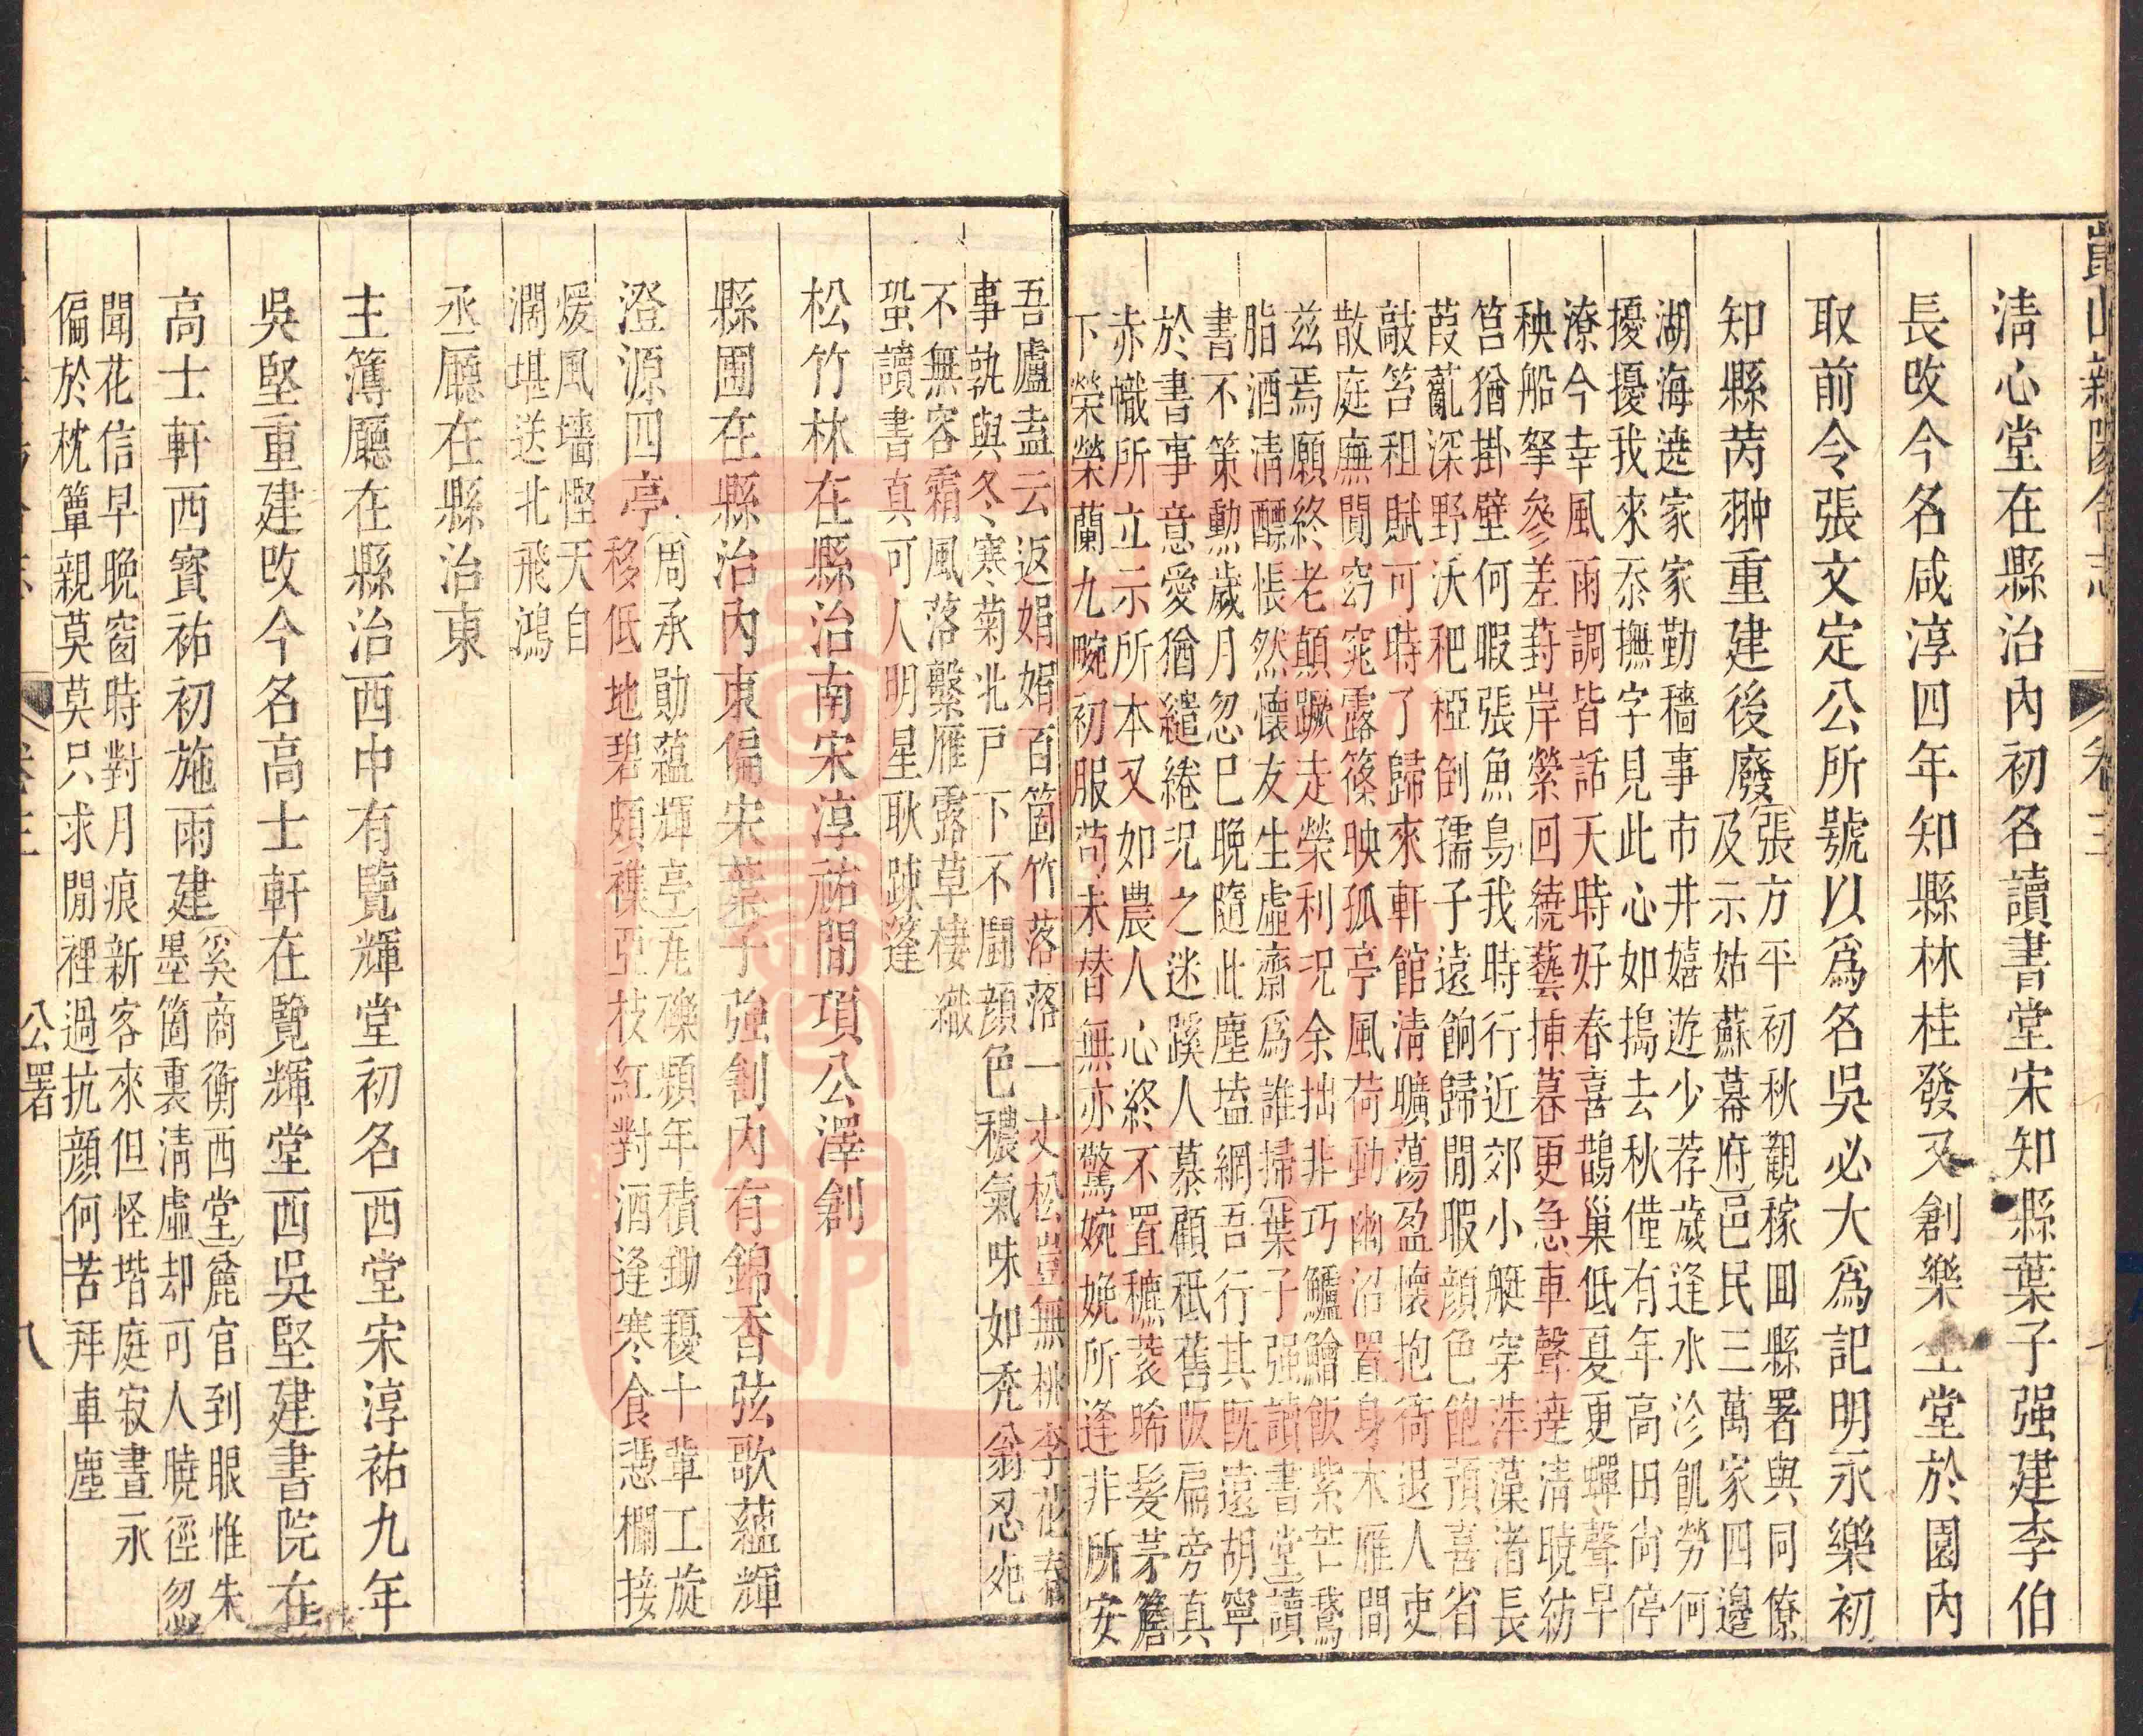 崑山新陽合志
卷三
清心堂在縣治內初名讀書堂宋知縣葉子强建李伯
長改今名咸淳四年知縣林桂發又創樂堂於園內
取前令張文定公所號以爲名吳必大爲記明永樂初
知縣芮翀重建後廢張方平初秋觀稼囬縣署與同僚
及示姑蘇幕府邑民三萬家四邊
湖海遶家家勤穡事市井嬉遊少荐歲逢水沴飢勞何
擾擾我來忝撫字見此心如擣去秋僅有年高田尙停
潦今幸風雨調皆話天時好春喜鵲巢低憂更蟬聲早
秧船拏參差葑岸縈回繞藝揷暮更急車聲達淸曉紡
筥猶掛壁何暇張魚鳥我時行近郊小艇穿萍藻渚長
葭薍深野沃秠稏倒孺子遠餉歸閒暇顏色飽預喜省
敲笞租賦可時了歸來軒館淸曠蕩盈懷抱倚退人吏
散庭廡閴窈窕露篠映孤亭風荷動幽沼置身木雁間
兹焉願終老顛蹶走榮利况余拙非巧鱸鱠飯紫芒鵞
脂酒淸醥悵然懷友生虛齋爲誰掃葉子强讀書堂讀
書不策勳歲月忽已晚隨此塵壒網吾行其旣遠胡寧
於書事意愛猶繾綣况之迷蹊人慕顧秖舊阪扁旁真
赤幟所立示所本又如農人心終不置穮蔉晞髮茅簷
下榮榮蘭九畹初服苟未替無亦驚婉娩所逢非所安
吾廬盍云返娟娟百箇竹落落一丈松豈無桃李花春
事孰與冬寒菊北戸下不鬭顏色穠氣味如禿翁忍死
不無容霜風落繫雁露草棲織
蛩讀書真可人明星耿疎篷
松竹林在縣治南宋淳祐閒項公澤創
縣圃在縣治內東偏宋葉子強創內有錦香弦歌蘊輝
澄源四亭周承勛蘊輝亭瓦礫頻年積鋤耰十輩工旋
移低地碧頗襍亞枝紅對酒逢寒食憑欄接
煖風墻慳天自
濶堪送北飛鴻
丞廳在縣治東
主簿廳在縣治西中有覽輝堂初名西堂宋淳祐九年
吳堅重建改今名高士軒在覽輝堂西吳堅建書院在
高士軒西寳祐初施雨建奚商衡西堂麄官到眼惟朱
墨箇裏淸虛却可人曉徑忽
聞花信早晩窗時對月痕新客來但怪堦庭寂晝永
偏於枕簟親莫莫只求閒裡過抗顏何苦拜車塵
公署
八